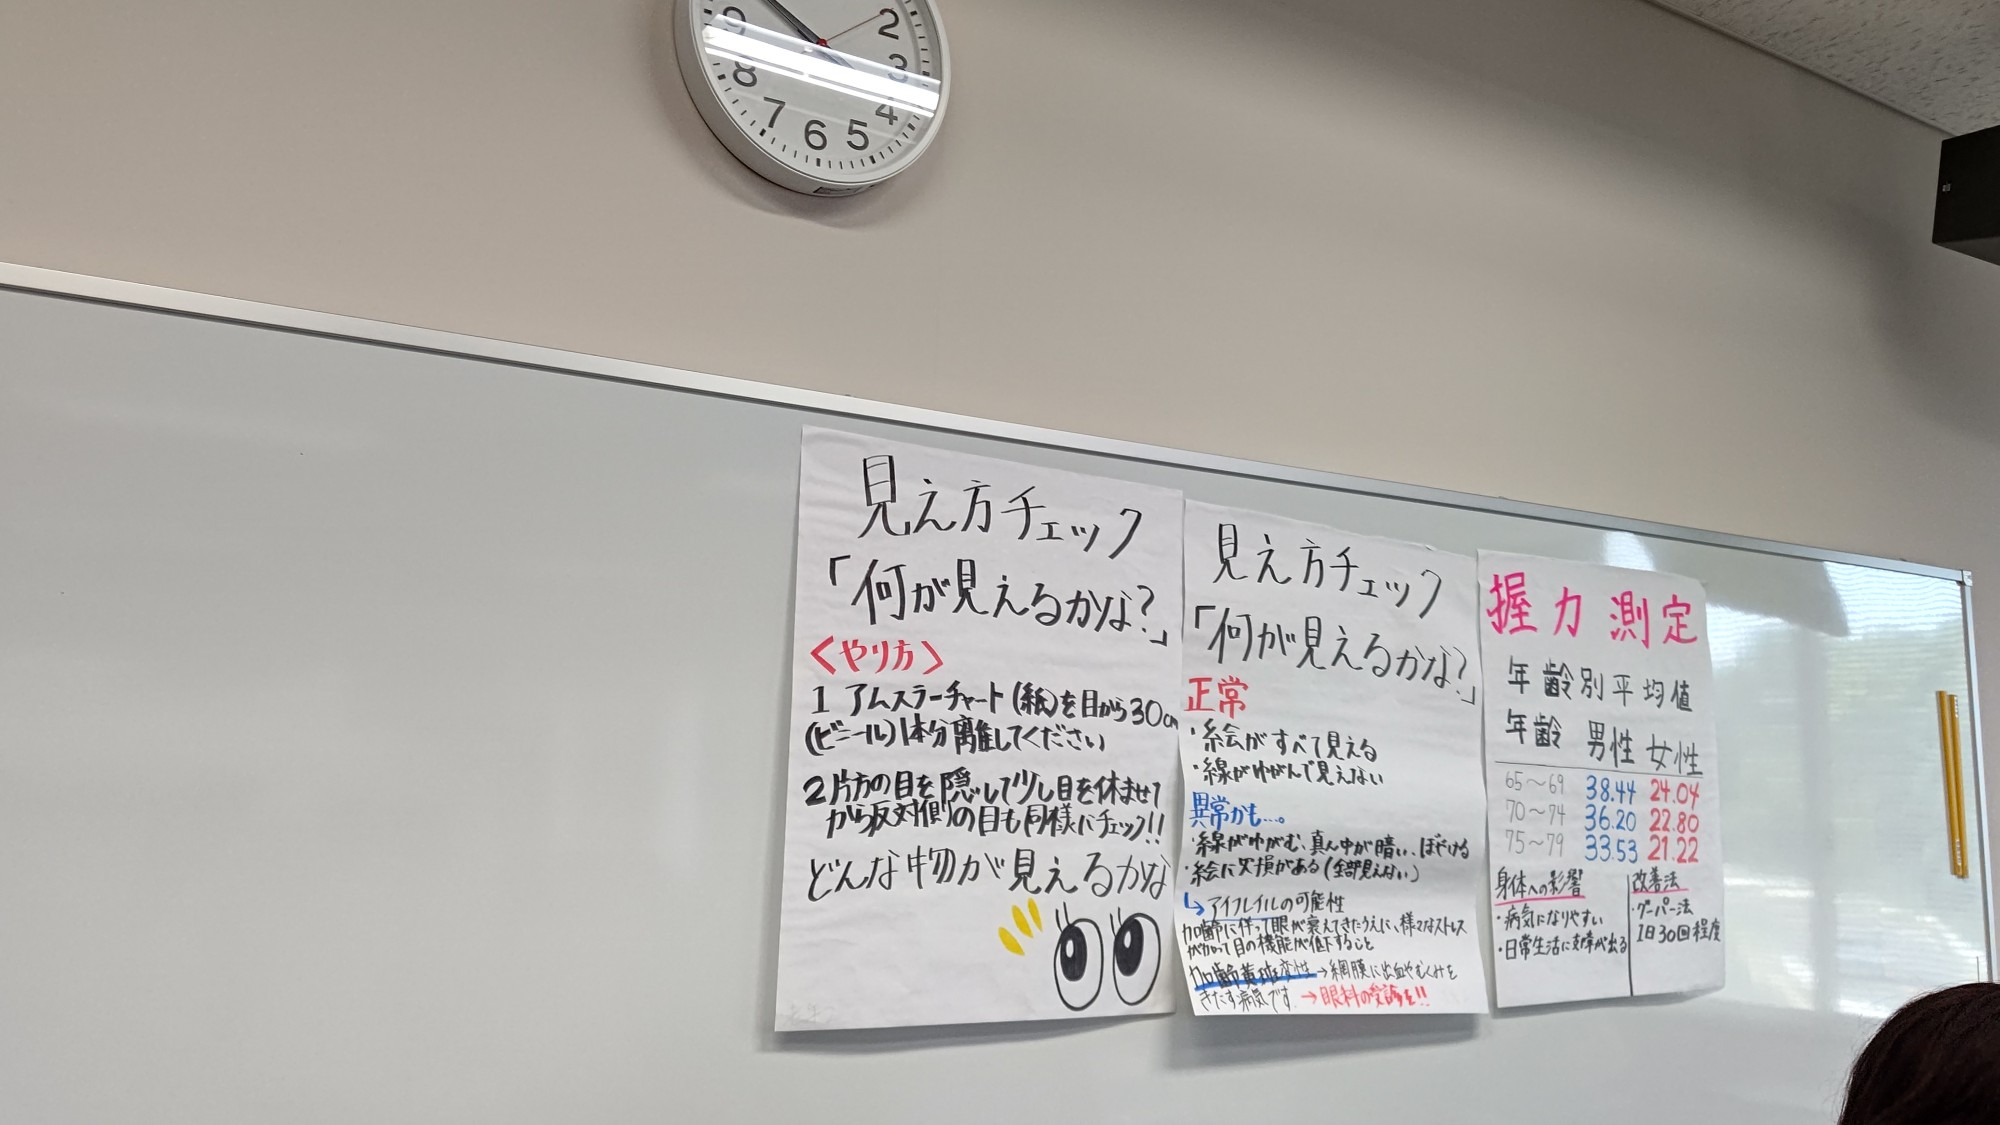 9
2
3
8
4
7
6
5
見え方チェック
「何が見えるかな?」
<やり方>
1 アムスラーチャート(紙)を目から30cm
(ビニール)1本分離してください
2片方の目を隠して少し目を休ませて
から反対側の目も同様にチェック!!
どんな物が見えるかな
見え方チェック
「何が見えるかな?」
正常
・絵がすべて見える
・線がゆがんで見えない
異常かも…。
・線がゆがむ、真ん中が暗い、ぼやける
・絵に欠損がある(全部見えない)
↳アイフレイルの可能性
加齢に伴って眼が衰えてきたうえに、様々なストレス
が加わって目の機能が低下すること
加齢黄斑変性→網膜に出血やむくみを
きたす病気です。→眼科の受診を!!
握力測定
年齢別平均値
年齢 男性 女性
65~69 38.44 24.04
70~74 36.20 22.80
75~79 33.53 21.22
身体への影響
・病気になりやすい
・日常生活に支障が出る
改善法
・グーパー法
1日30回程度